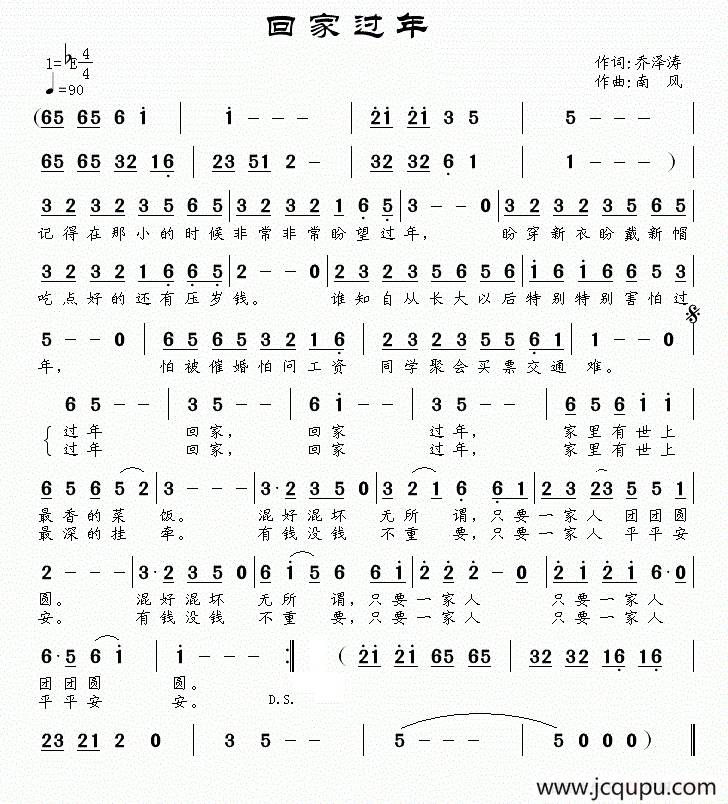 回家过年
1=♭E 4/4
♩=90
作词:乔泽涛
作曲:南 风
(65 65 6 i | i - - - | 2i 2i 3 5 | 5 - - - |
65 65 32 16 | 23 51 2 - | 32 32 6 1 | 1 - - - )
3 2 3 2 3 5 6 5 | 3 2 3 2 1 6 5 | 3 - - 0 | 3 2 3 2 3 5 6 5
记得在那小的时候非常非常盼望过年, 盼穿新衣盼戴新帽
3 2 3 2 1 6 6 5 | 2 - - 0 | 2 3 2 3 5 6 5 6 | i 6 i 6 6 5 3
吃点好的还有压岁钱。 谁知自从长大以后特别特别害怕过
5 - - 0 | 6 5 6 5 3 2 1 6 | 2 3 2 3 5 5 6 1 | 1 - - 0
年, 怕被催婚怕问工资 同学聚会买票交通难。
6 5 - - | 3 5 - - | 6 i - - | 3 5 - - | 6 5 6 i i
过年 回家, 回家 过年, 家里有世上
过年 回家, 回家 过年, 家里有世上
6 5 6 5 5 2 | 3 - - - | 3·2 3 5 0 | 3 2 1 6 6 1 | 2 3 23 5 5 1
最香的菜 饭。 混好混坏 无所 谓,只要一家人 团团圆
最深的挂 牵。 有钱没钱 不重 要,只要一家人 平平安
2 - - - | 3·2 3 5 0 | 6 i 5 6 6 i | 2 2 2 - 0 | 2 2 6 i 0
圆。 混好混坏 无所 谓,只要一家人 只要一家人
安。 有钱没钱 不重 要,只要一家人 只要一家人
6·5 6 i | i - - :‖ (2i 2i 65 65 | 32 32 16 16
团团圆 圆。
平平安 安。 D.S.
23 21 2 0 | 3 5 - - | 5 - - - | 5 0 0 0 )‖
www.jcqupu.com